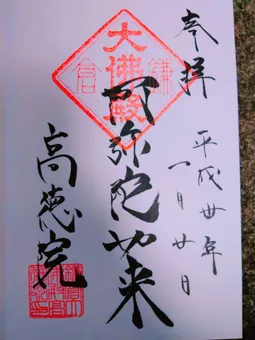 奉拝
平成卅年
一月廿日
大佛殿
鎌倉
阿弥陀如来
高徳院